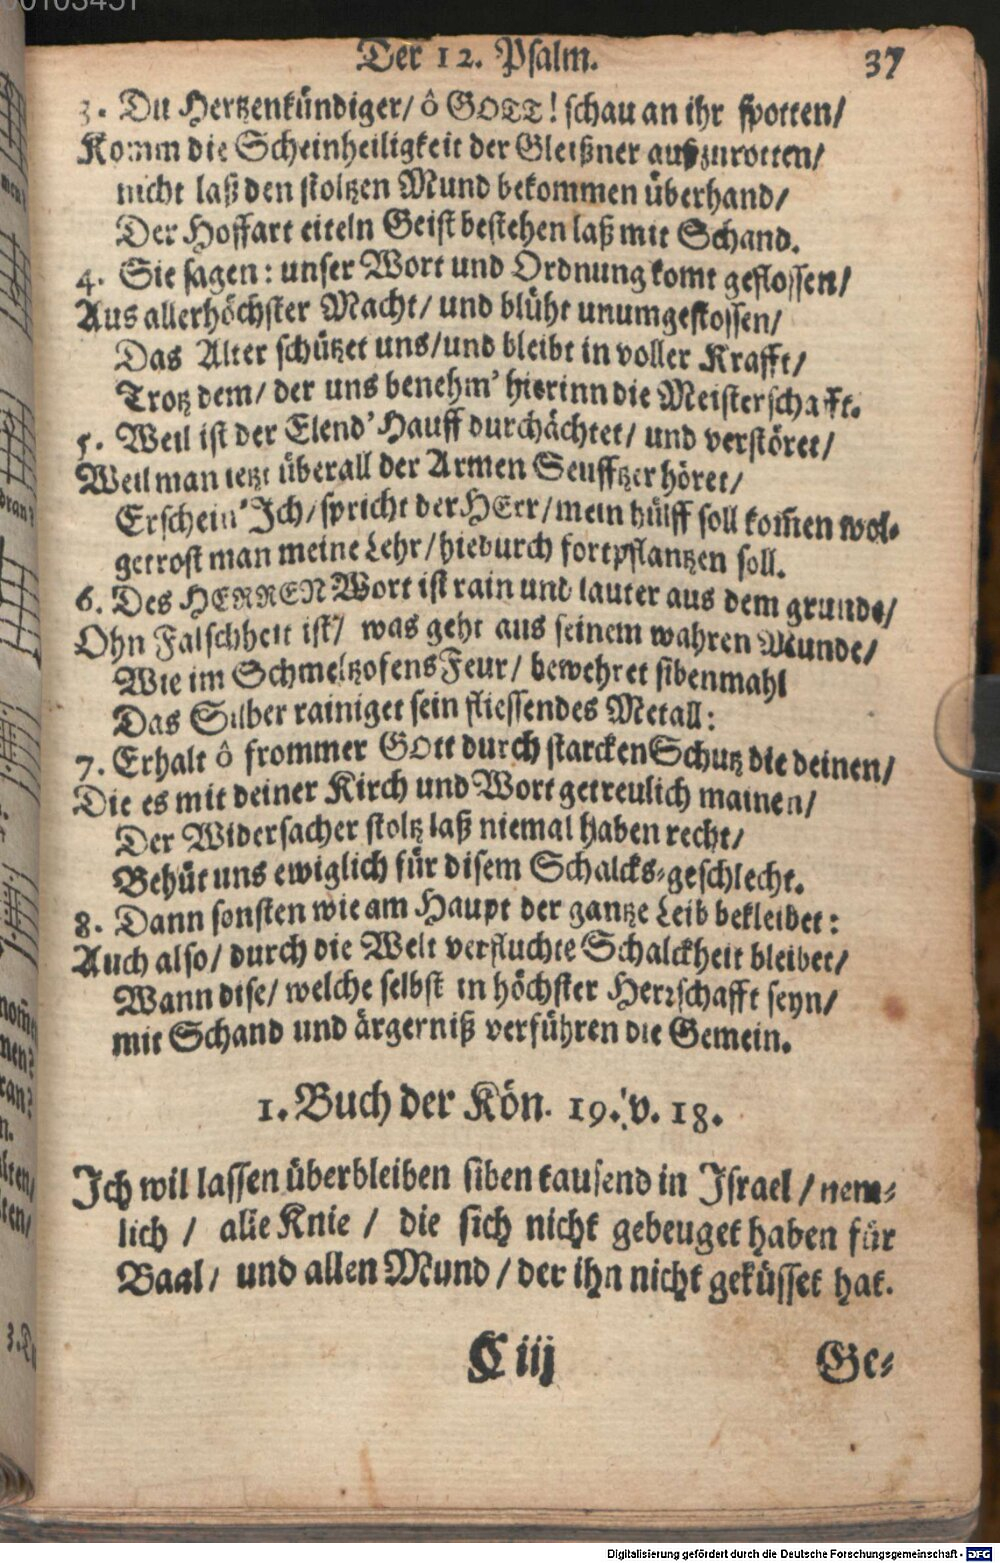 Der 12. Psalm. 37
3. Du Hertzenkündiger/ ô GOTT! schau an ihr spotten/
Komm die Scheinheiligkeit der Gleißner auszurotten/
nicht laß den stoltzen Mund bekommen überhand/
Der Hoffart eiteln Geist bestehen laß mit Schand.
4. Sie sagen: unser Wort und Ordnung komt geflossen/
Aus allerhöchster Macht/ und blüht unumgestossen/
Das Alter schützet uns/ und bleibt in voller Krafft/
Trotz dem/ der uns benehm' hierinn die Meisterschafft.
5. Weil ist der Elend' Hauff durchächtet/ und verstöret/
Weil man ietzt überall der Armen Seufftzer höret/
Erschein' Ich/ spricht der HErr/ mein hülff soll kom̃en wol-
getrost man meine Lehr/ hiedurch fortpflantzen soll.
6. Des HERREN Wort ist rain und lauter aus dem grunde/
Ohn Falschheit ist/ was geht aus seinem wahren Munde/
Wie im Schmeltzofens Feur/ bewehret sibenmahl
Das Silber rainiget sein fliessendes Metall:
7. Erhalt ô frommer GOtt durch starcken Schutz die deinen/
Die es mit deiner Kirch und Wort getreulich mainen/
Der Widersacher stoltz laß niemal haben recht/
Behüt uns ewiglich für disem Schalcks-geschlecht.
8. Dann sonsten wie am Haupt der gantze Leib bekleidet:
Auch also/ durch die Welt verfluchte Schalckheit bleibet/
Wann dise/ welche selbst in höchster Herrschafft seyn/
mit Schand und ärgerniß verführen die Gemein.
1. Buch der Kön. 19. v. 18.
Ich wil lassen überbleiben siben tausend in Israel/ nem-
lich/ alle Knie/ die sich nicht gebeuget haben für
Baal/ und allen Mund/ der ihn nicht geküsset hat.
C iij Ge-
Digitalisierung gefördert durch die Deutsche Forschungsgemeinschaft - DFG